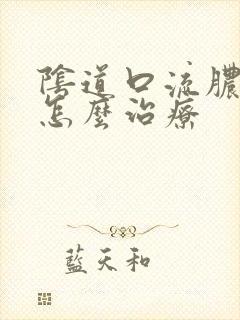 陰道口流膿
怎麼治療
藍天和